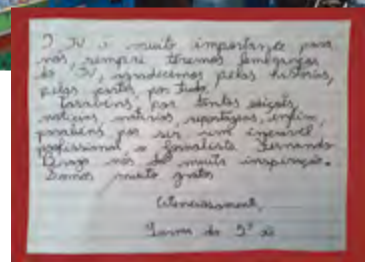 O JV é muito importante para
nós, sempre teremos lembranças
do JV, agradecemos pelas histórias,
pelas partes, por tudo.
Parabéns, por tantas edições,
notícias, matérias, reportagens, enfim,
parabéns por ser um incrível
profissional, o jornalista Fernando
nos dá muita inspiração.
Somos muito gratos
Atenciosamente,
Turma do 5º